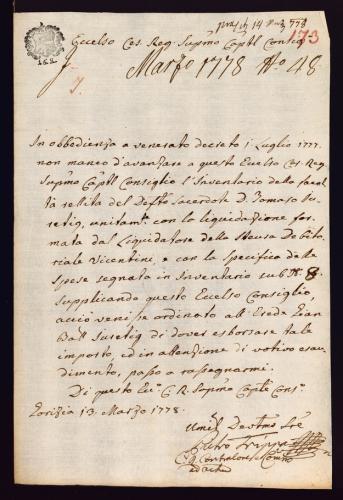 14 Marzo 778
173
Eccelso Ces. Reg. Supmo Captl Consig
Marzo 1778 No 48
In obbedienza a venerato decreto 1 Luglio 1777.
non manco d'avanzare a questo Eccelso Ces. Reg.
Supmo Captl Consiglio l'Inventario della facol
tà relitta del Defto Sacerdote D. Tomaso
unitamte con la liquidazione for
mata dal Liquidatore della Steura Debito
riale Vicentini, e con la Specifica delle
Spese segnata in Inventario sub N. 8.
Supplicando questo Eccelso Consiglio,
acciò venisse ordinato all'Erede Gian
Batt di dover esborsare tale
importo, ed in attenzione di votivo esau
dimento, passo a rassegnarmi.
Di questo Ec. C. R. Supmo Captle Cons.
Gorizia 13. Marzo 1778.
Umil Devtmo Sre
Pietro